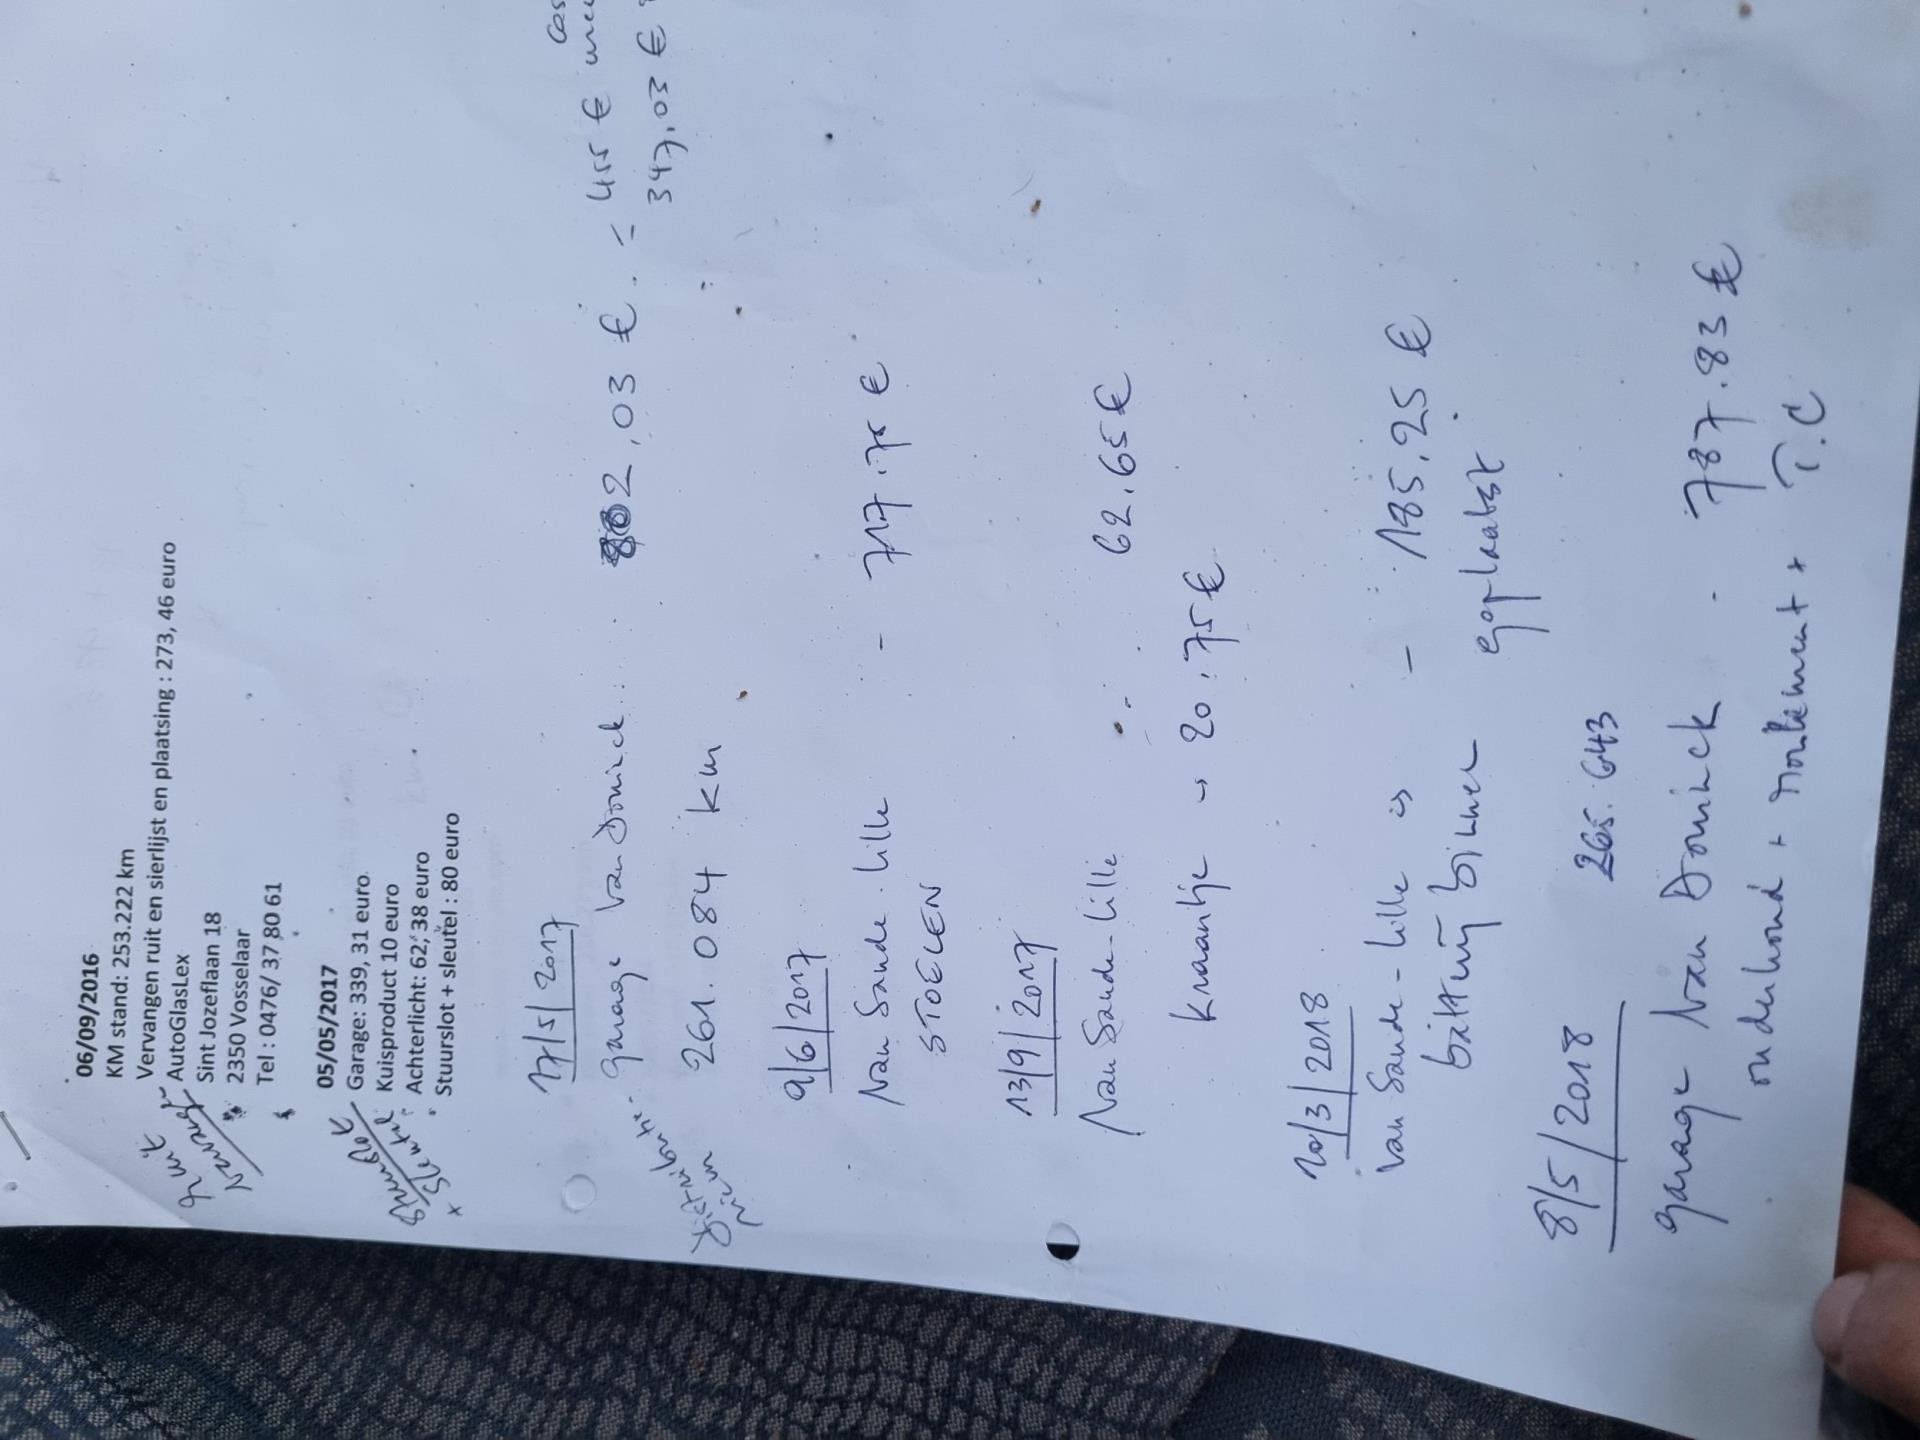 06/09/2016
KM stand: 253.222 km
Vervangen ruit en sierlijst en plaatsing : 273, 46 euro
ruit
vervang
AutoGlasLex
Sint Jozeflaan 18
2350 Vosselaar
Tel : 0476/ 37 80 61
05/05/2017
Garage: 339, 31 euro
Kuisproduct 10 euro
Achterlicht: 62, 38 euro
Stuurslot + sleutel : 80 euro
stuurslot
x sleutel
17/5/2017
Garage Van Dominck 802,03 € = 455 €
347,03 €
261.084 km
distributie-
riem
9/6/2017
Van Sande - Lille - 717.75 €
STOELEN
13/9/2017
Van Sande - Lille 62.65 €
Kraantje → 20.75 €
10/3/2018
Van Sande - Lille - 185,25 €
batterij binnen geplaatst
8/5/2018 265.643
garage Van Dominck - 787.83 €
onderhoud + + T.C